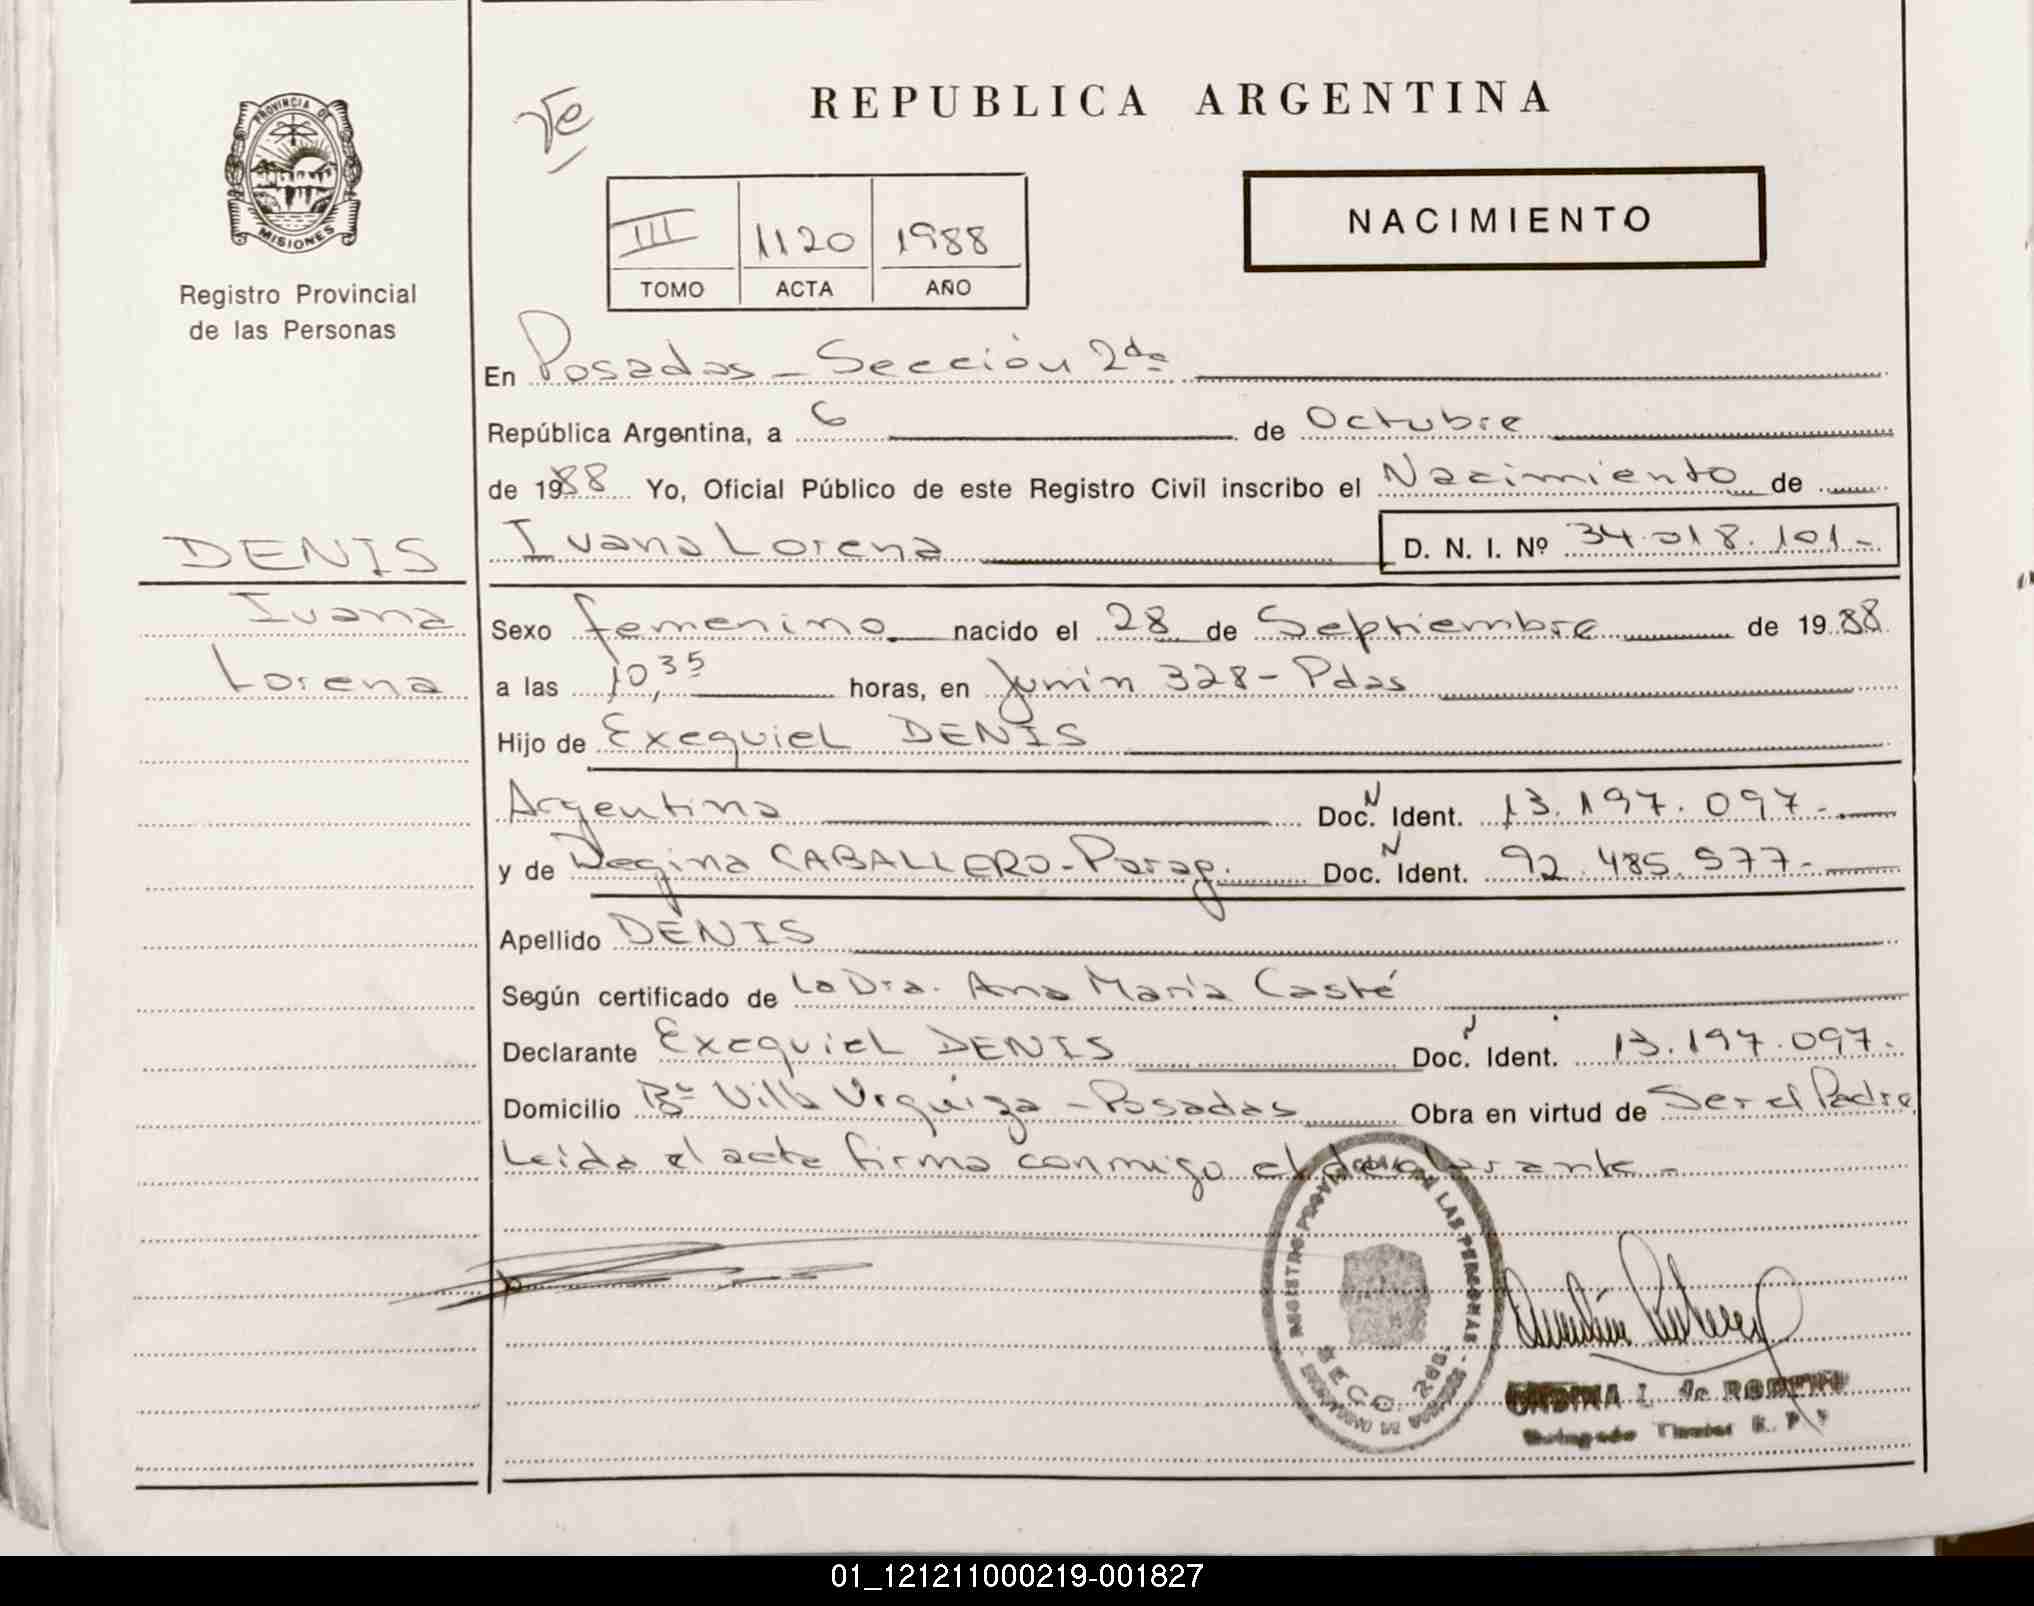 PROVINCIA DE
MISIONES
Registro Provincial
de las Personas
DENIS
Ivana
Lorena
REPUBLICA ARGENTINA
NACIMIENTO
III 1120 1988
TOMO ACTA AÑO
En Posadas - Sección 2da
República Argentina, a 6 de Octubre
de 1988 Yo, Oficial Público de este Registro Civil inscribo el Nacimiento de
Ivana Lorena D. N. I. Nº 34.018.101.-
Sexo femenino nacido el 28 de Septiembre de 1988
a las 10,35 horas, en Junín 328 - Pdas
Hijo de Exequiel DENIS
Argentina Doc. N Ident. 13.197.097.-
y de Regina CABALLERO - Parag. Doc. N Ident. 92.485.577.-
Apellido DENIS
Según certificado de La Dra. Ana María Casté
Declarante Exequiel DENIS Doc. N Ident. 13.197.097.-
Domicilio Bº Villa Urquiza - Posadas Obra en virtud de Ser el Padre
Leida el acta firma conmigo el declarante -
REGISTRO PROVINCIAL DE LAS PERSONAS
SECC. 2da.
01_121211000219-001827